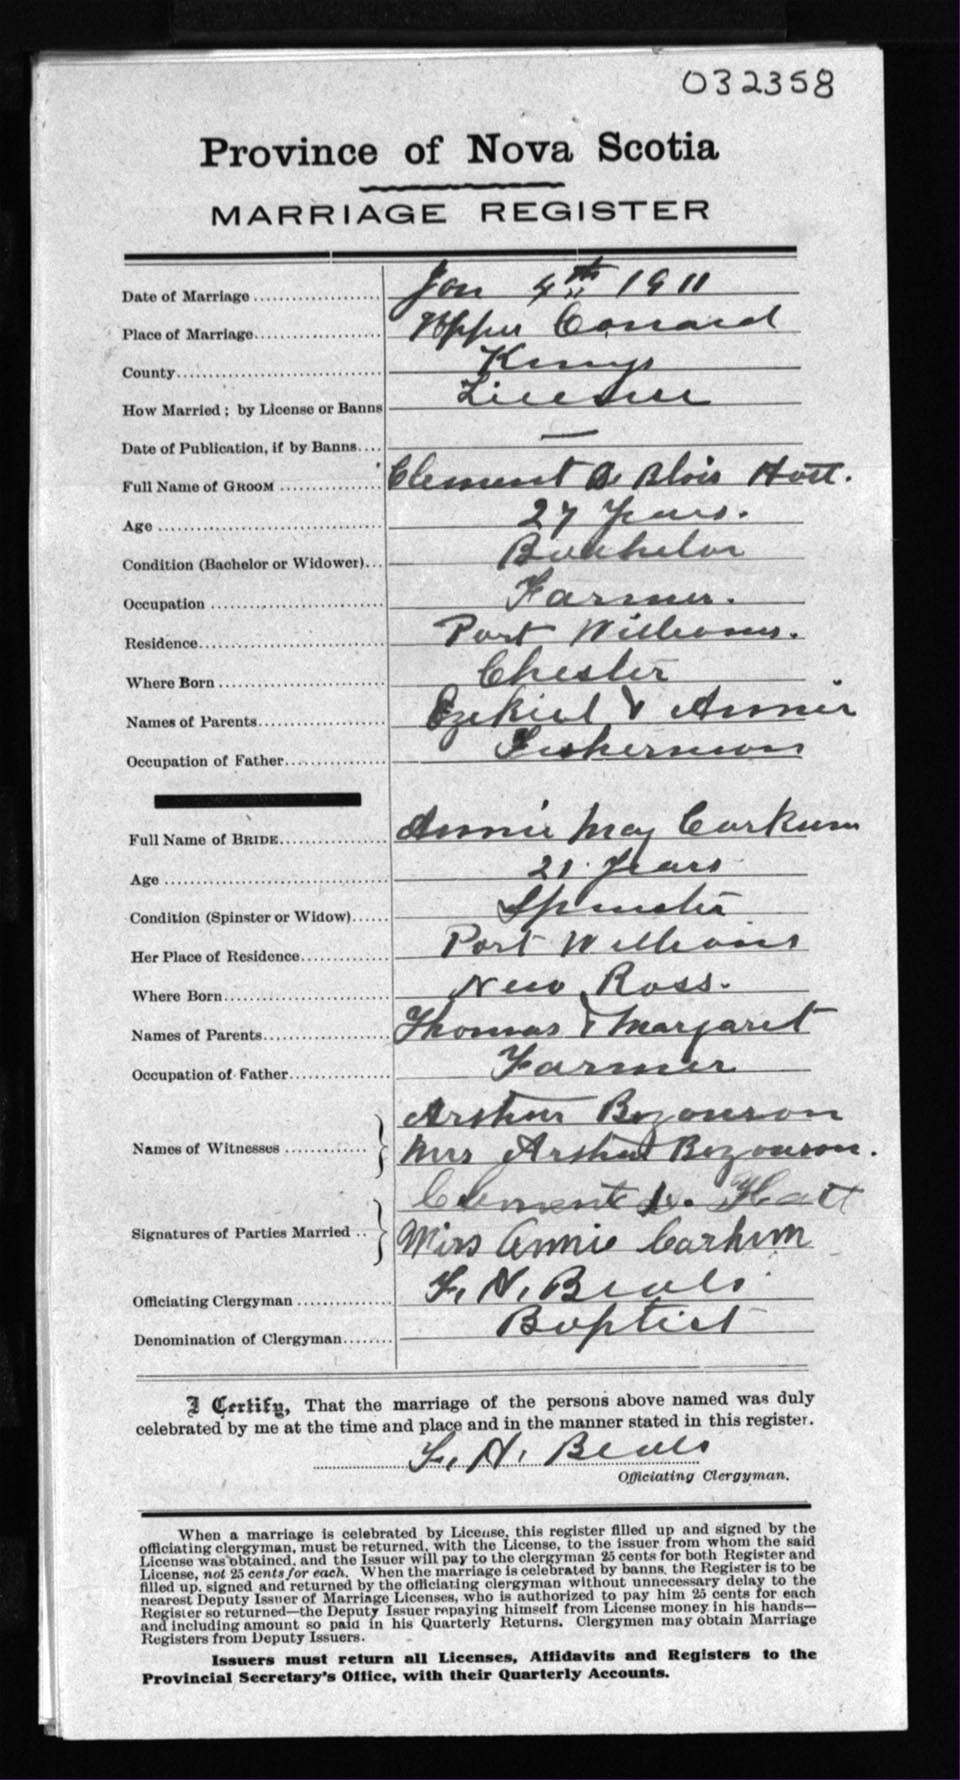 032358
Province of Nova Scotia
MARRIAGE REGISTER
Date of Marriage Jan 4th 1911
Place of Marriage Upper Canard
County Kings
How Married; by License or Banns License
Date of Publication, if by Banns —
Full Name of GROOM Clement De Blois Hatt.
Age 27 Years.
Condition (Bachelor or Widower) Bachelor
Occupation Farmer.
Residence Port Williams.
Where Born Chester
Names of Parents Ezekiel & Annie
Occupation of Father Fisherman
Full Name of BRIDE Annie May Corkum
Age 21 Years
Condition (Spinster or Widow) Spinster
Her Place of Residence Port Williams
Where Born New Ross.
Names of Parents Thomas & Margaret
Occupation of Father Farmer
Names of Witnesses Arthur Bezonson
Mrs Arthur Bezonson.
Signatures of Parties Married Clement D. Hatt
Mirs Annie Carkum
Officiating Clergyman F. N. Beals
Denomination of Clergyman Baptist
I Certify, That the marriage of the persons above named was duly
celebrated by me at the time and place and in the manner stated in this register.
F. N. Beals
Officiating Clergyman.
When a marriage is celebrated by License, this register filled up and signed by the
officiating clergyman, must be returned, with the License, to the issuer from whom the said
License was obtained, and the Issuer will pay to the clergyman 25 cents for both Register and
License, not 25 cents for each. When the marriage is celebrated by banns, the Register is to be
filled up, signed and returned by the officiating clergyman without unnecessary delay to the
nearest Deputy Issuer of Marriage Licenses, who is authorized to pay him 25 cents for each
Register so returned—the Deputy Issuer repaying himself from License money in his hands—
and including amount so paid in his Quarterly Returns. Clergymen may obtain Marriage
Registers from Deputy Issuers.
Issuers must return all Licenses, Affidavits and Registers to the
Provincial Secretary's Office, with their Quarterly Accounts.